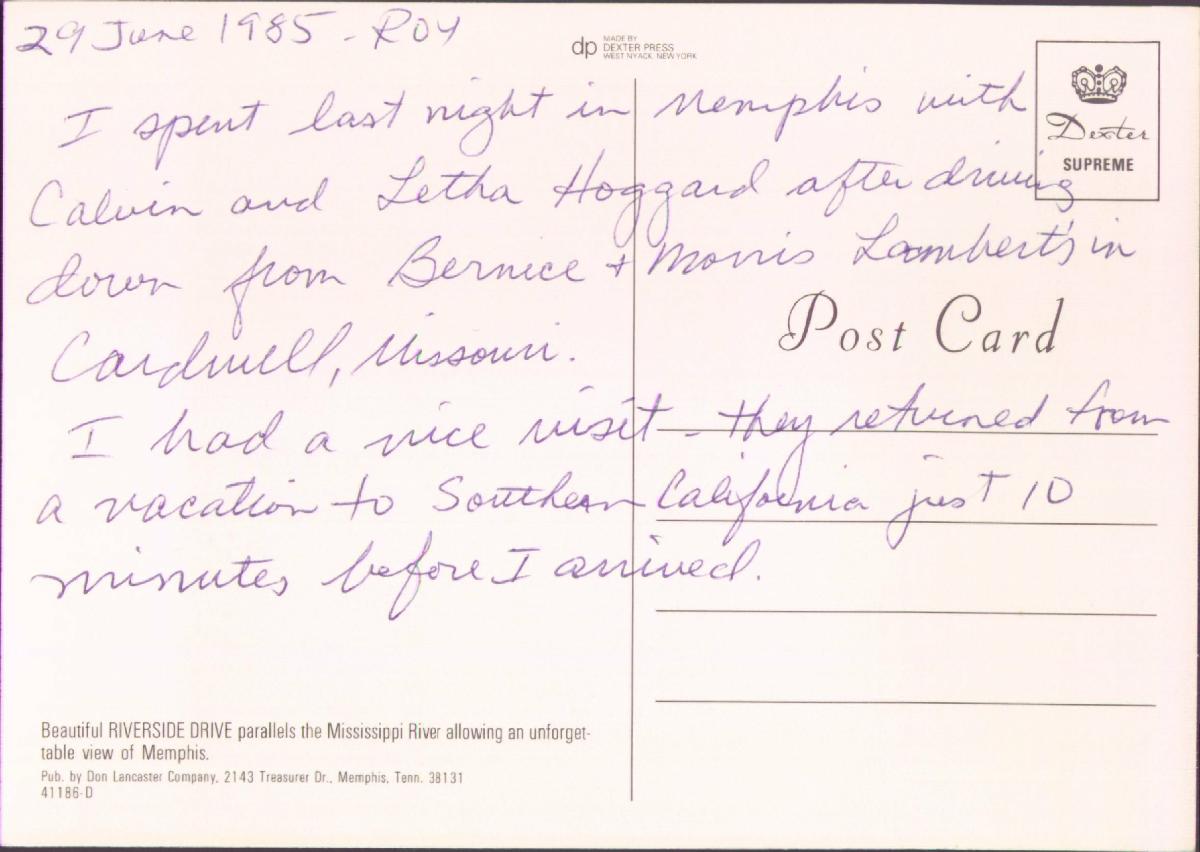 29 June 1985 - ROY
dp MADE BY
DEXTER PRESS
WEST NYACK, NEW YORK
Dexter
SUPREME
I spent last night in Memphis with
Calvin and Letha Hoggard after driving
down from Bernice + Morris Lambert's in
Cardwell, Missouri.
Post Card
I had a nice visit - they returned from
a vacation to Southern California just 10
minutes before I arrived.
Beautiful RIVERSIDE DRIVE parallels the Mississippi River allowing an unforget-
table view of Memphis.
Pub. by Don Lancaster Company, 2143 Treasurer Dr., Memphis, Tenn. 38131
41186-D